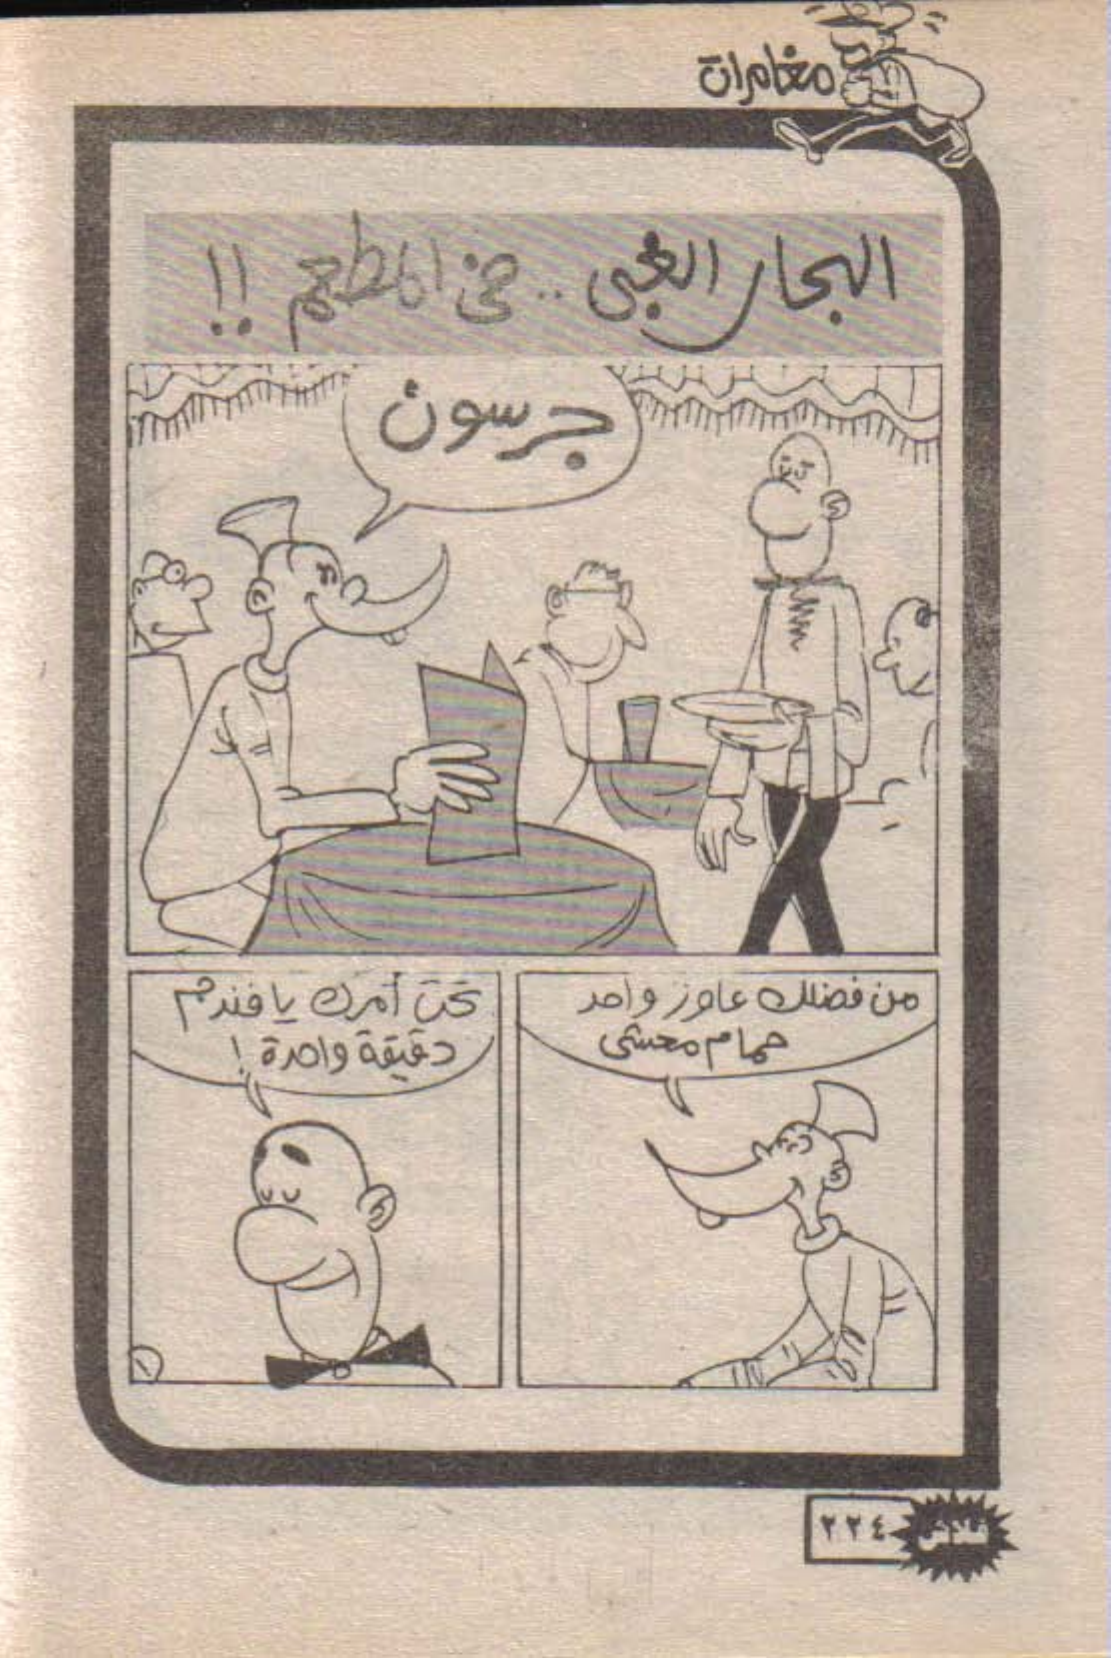 مغامرات
البحار الغبى .. فى المطعم !!
جرسون
من فضلك عاوز واحد
حمام محشى
تحت أمرك يا فندم
دقيقة واحدة !
١
٢٢٤